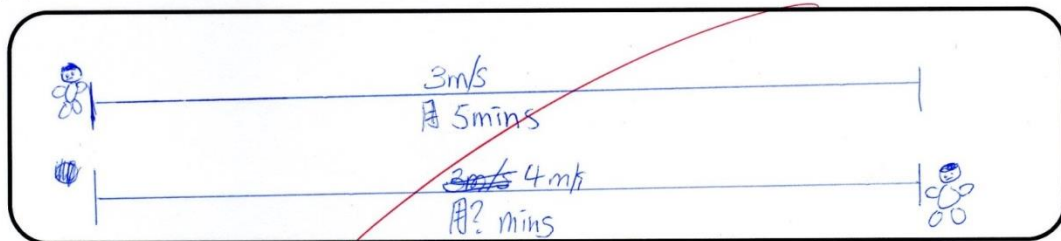 3m/s
用 5mins
3m/s 4m/s
用? mins